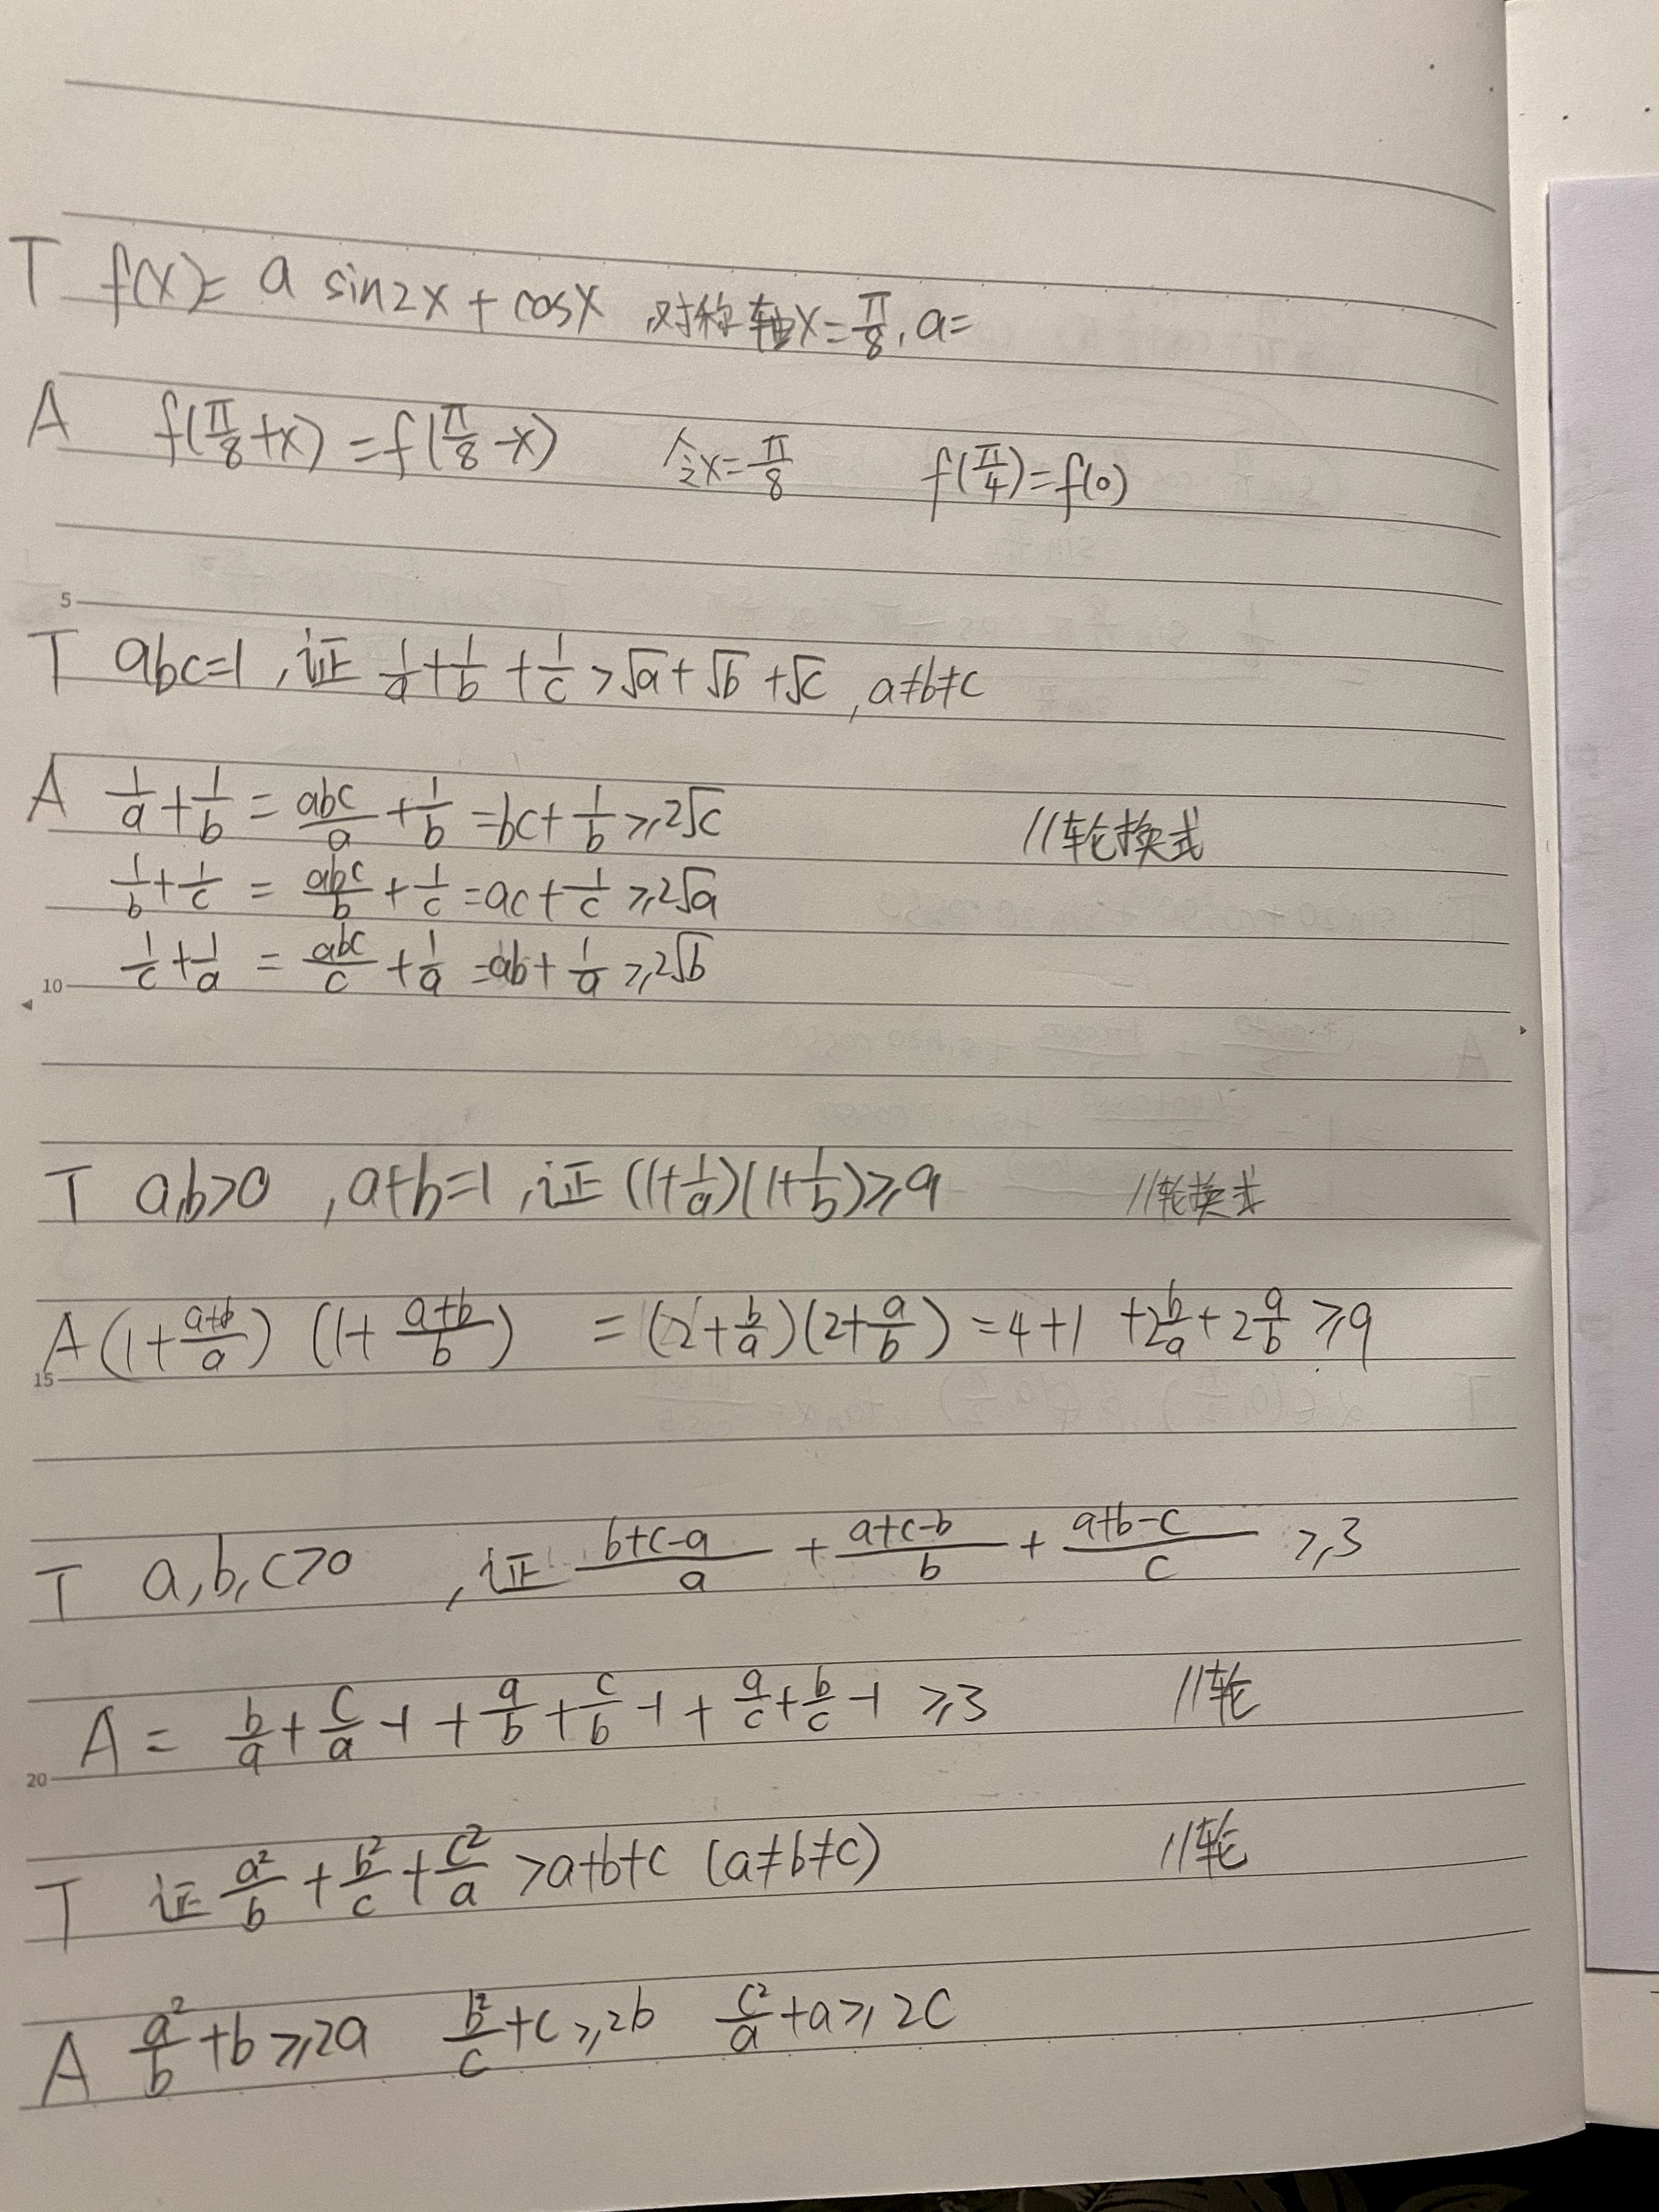 T f(x)= a sin2x + cosx ,对称轴x=π/8, a=
A f(π/8+x)=f(π/8-x) 令x=π/8 f(π/4)=f(0)
5
T abc=1,证 1/a+1/b+1/c>√a+√b+√c,a≠b≠c
A 1/a+1/b=abc/a+1/b=bc+1/b≥2√c //轮换式
1/b+1/c=abc/b+1/c=ac+1/c≥2√a
1/c+1/a=abc/c+1/a=ab+1/a≥2√b
10
T a,b>0 ,a+b=1,证 (1+1/a)(1+1/b)≥9 //轮换式
A (1+(a+b)/a) (1+(a+b)/b) =(2+b/a)(2+a/b)=4+1+2b/a+2a/b≥9
15
T a,b,c>0 ,证 (b+c-a)/a+(a+c-b)/b+(a+b-c)/c≥3
A = b/a+c/a-1+a/b+c/b-1+a/c+b/c-1≥3 //轮
20
T 证 a²/b+b²/c+c²/a>a+b+c (a≠b≠c) //轮
A a²/b+b≥2a b²/c+c≥2b c²/a+a≥2c